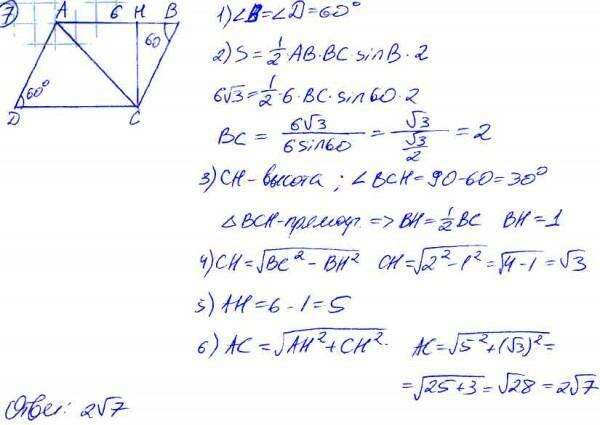 7
A 6 H B
60
60°
D C
1) ∠B = ∠D = 60°
2) S = 1/2 · AB · BC · sin B · 2
6√3 = 1/2 · 6 · BC · sin 60 · 2
BC = 6√3 / 6 sin 60 = √3 / (√3/2) = 2
3) CH - высота ; ∠BCH = 90 - 60 = 30°
△BCH - прямоуг. => BH = 1/2 BC BH = 1
4) CH = √(BC² - BH²) CH = √(2² - 1²) = √(4 - 1) = √3
5) AH = 6 - 1 = 5
6) AC = √(AH² + CH²). AC = √(5² + (√3)²) =
= √(25 + 3) = √28 = 2√7
Ответ: 2√7